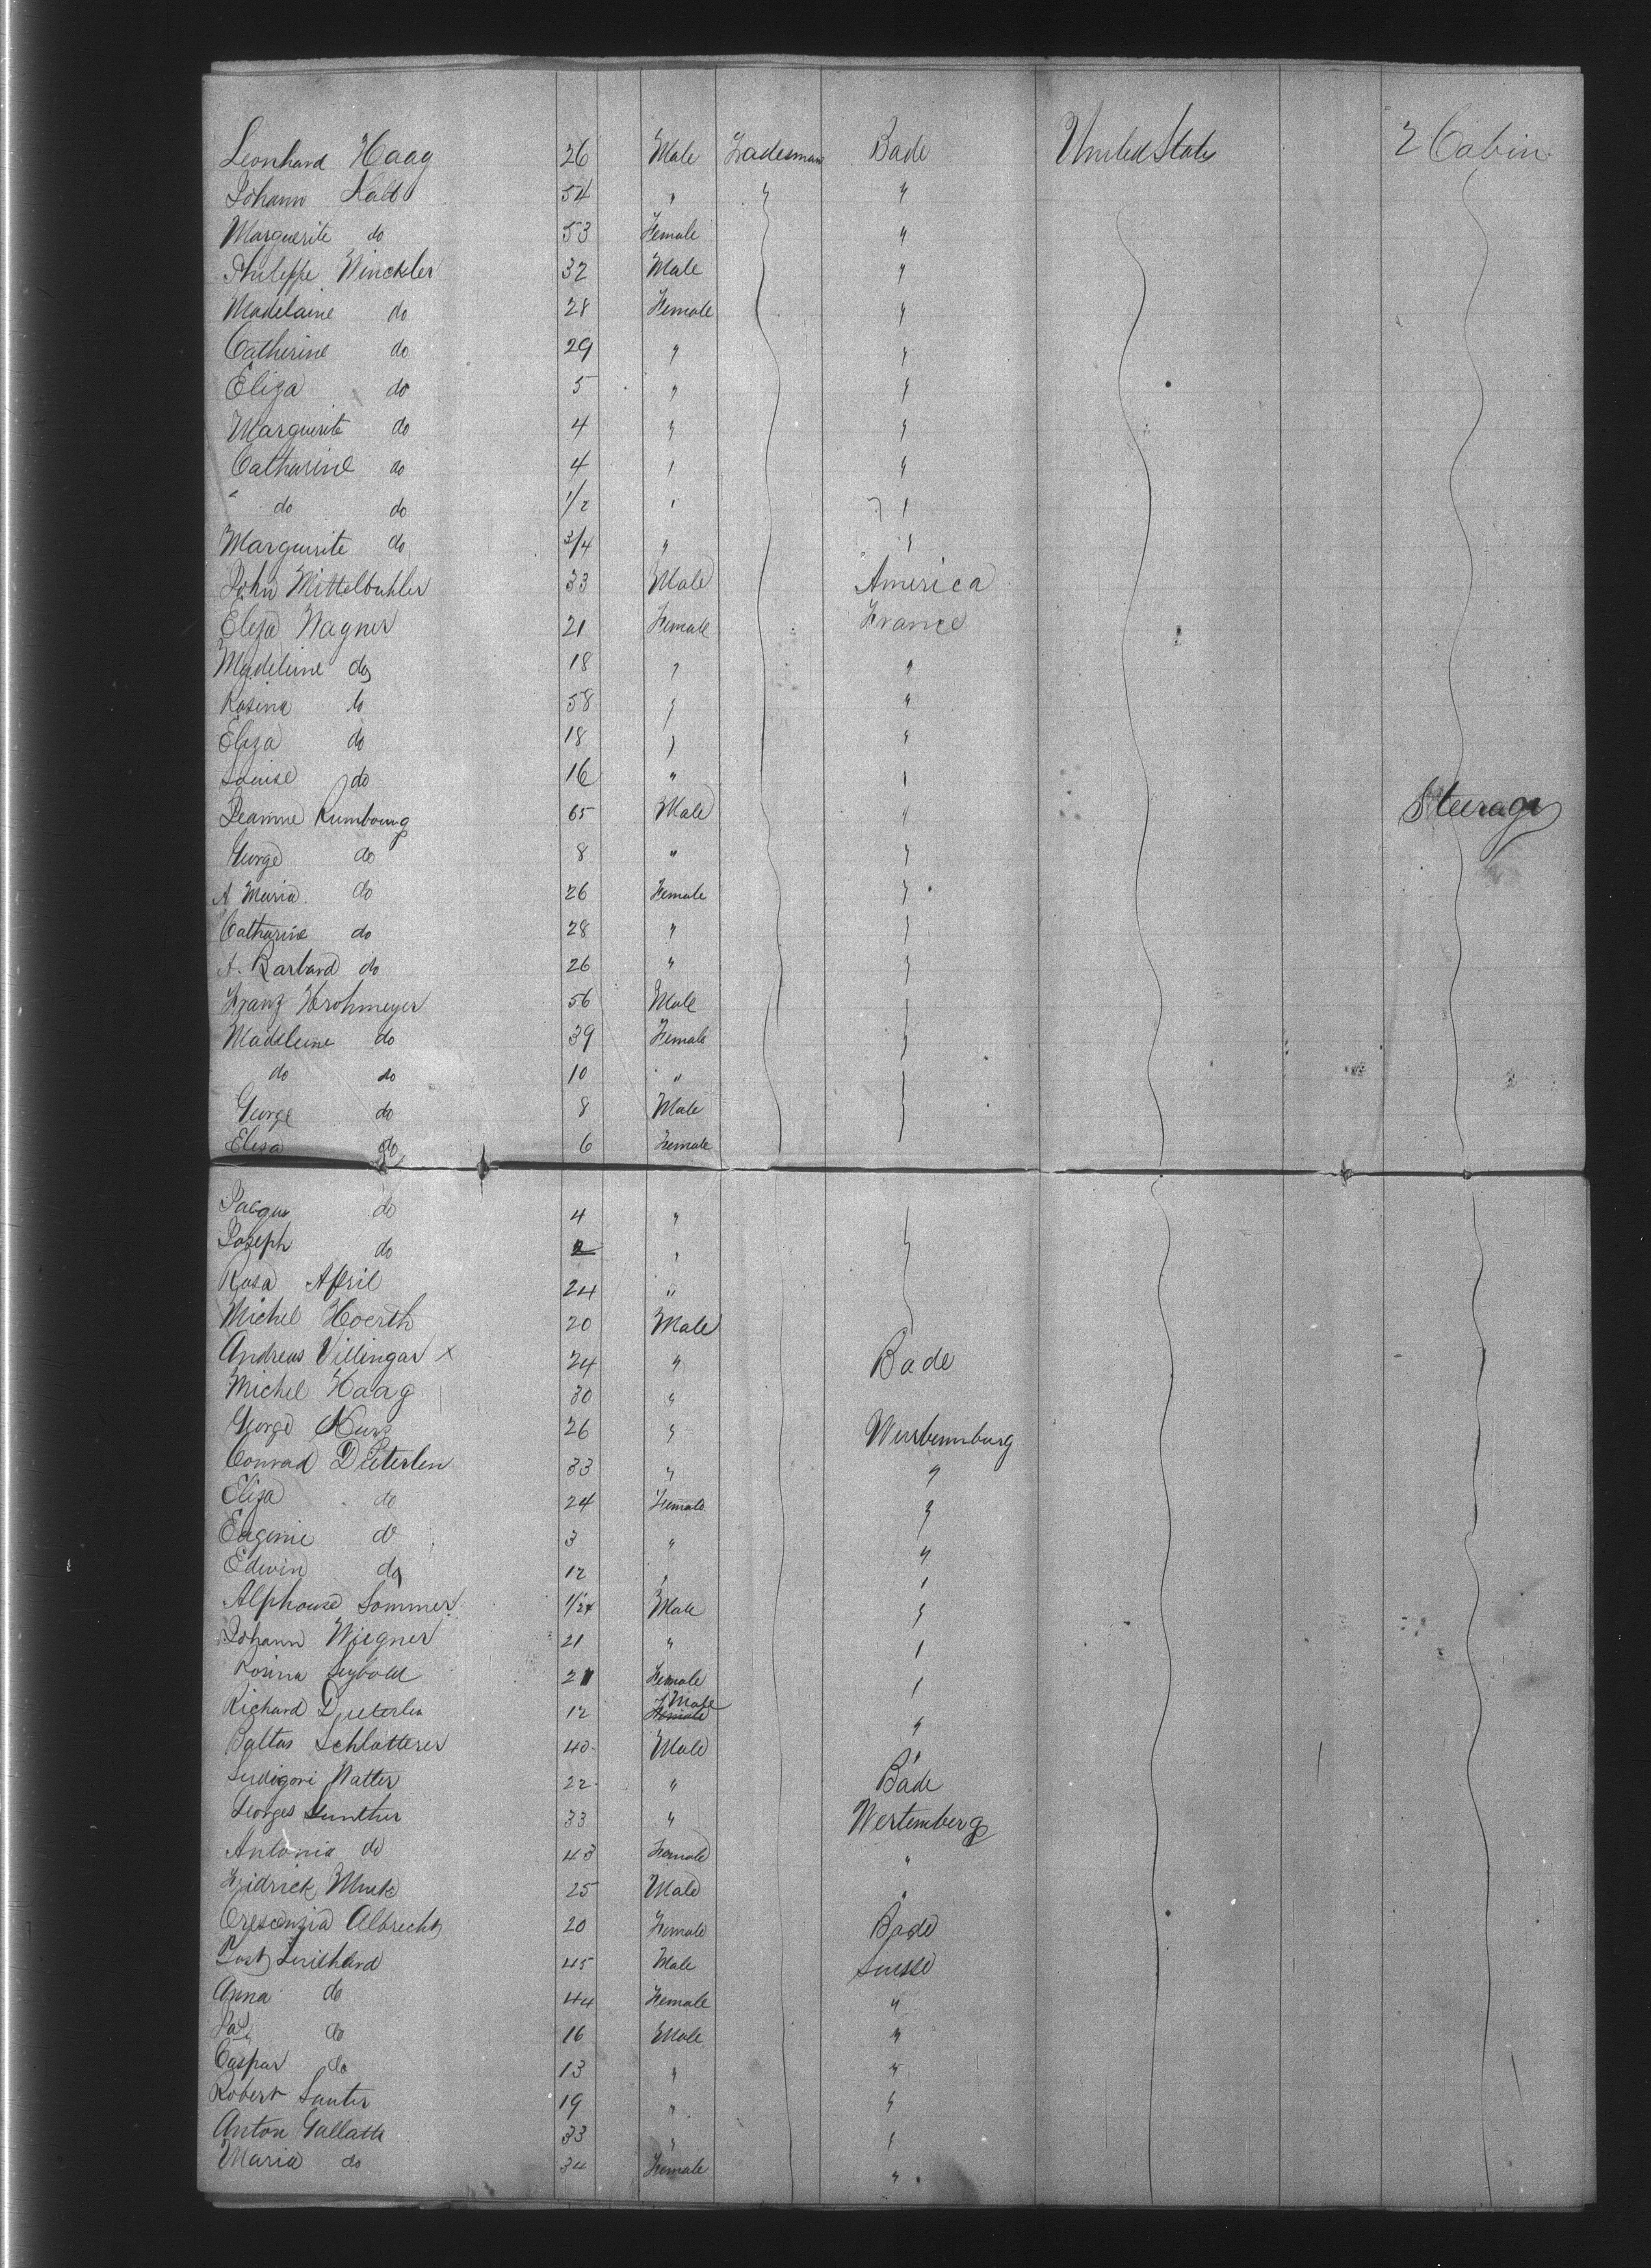 Leonhard Haag 26 Male Tradesman Bade United States 2 Cabin
Johann Kalt 54 " " "
Marguerite do 53 Female "
Philippe Winckler 32 Male "
Madelaine do 28 Female "
Catherine do 29 " "
Eliza do 5 " "
Marguerite do 4 " "
Catharine do 4 " "
" do do 1/2 " "
Marguerite do 3/4 " "
John Mittelbuhler 33 Male America
Eliza Wagner 21 Female France
Madeleine do 18 " "
Rosina do 58 " "
Eliza do 18 " "
Louise do 16 " "
Jeanne Rumbourg 65 Male " Steerage
George do 8 " "
A Maria do 26 Female "
Catharine do 28 " "
A. Barbara do 26 " "
Franz Hrohmeyer 56 Male
Madeleine do 39 Female "
do do 10 "
George do 8 Male
Elisa do 6 Female
Jacque do 4 "
Joseph do 2 "
Rosa April 24 "
Michel Hoerth 20 Male
Andreas Villingar x 24 " Bade
Michel Haag 30 "
George Kurz 26 " Wurtemburg
Conrad Dieterlen 33 " "
Eliza do 24 Female "
Eugenie do 3 " "
Edwin do 12 " "
Alphonse Sommer 1/24 Male "
Johann Wiegner 21 " "
Rosina Seybold 21 Female "
Richard Dieterlen 12 Female Male "
Baltas Schlatterer 40 Male "
Natter 22 " Bade
Georges Gunther 33 " Wertemberg
Antonia do 43 Female "
Fridrick 25 Male "
Cresenzia Albrecht 20 Female Bade
Jost 45 Male Suisse
Anna do 44 Female "
do 16 Male "
Caspar do 13 " "
Robert Sauter 19 " "
Anton Gallatti 33 " "
Maria do 34 Female "